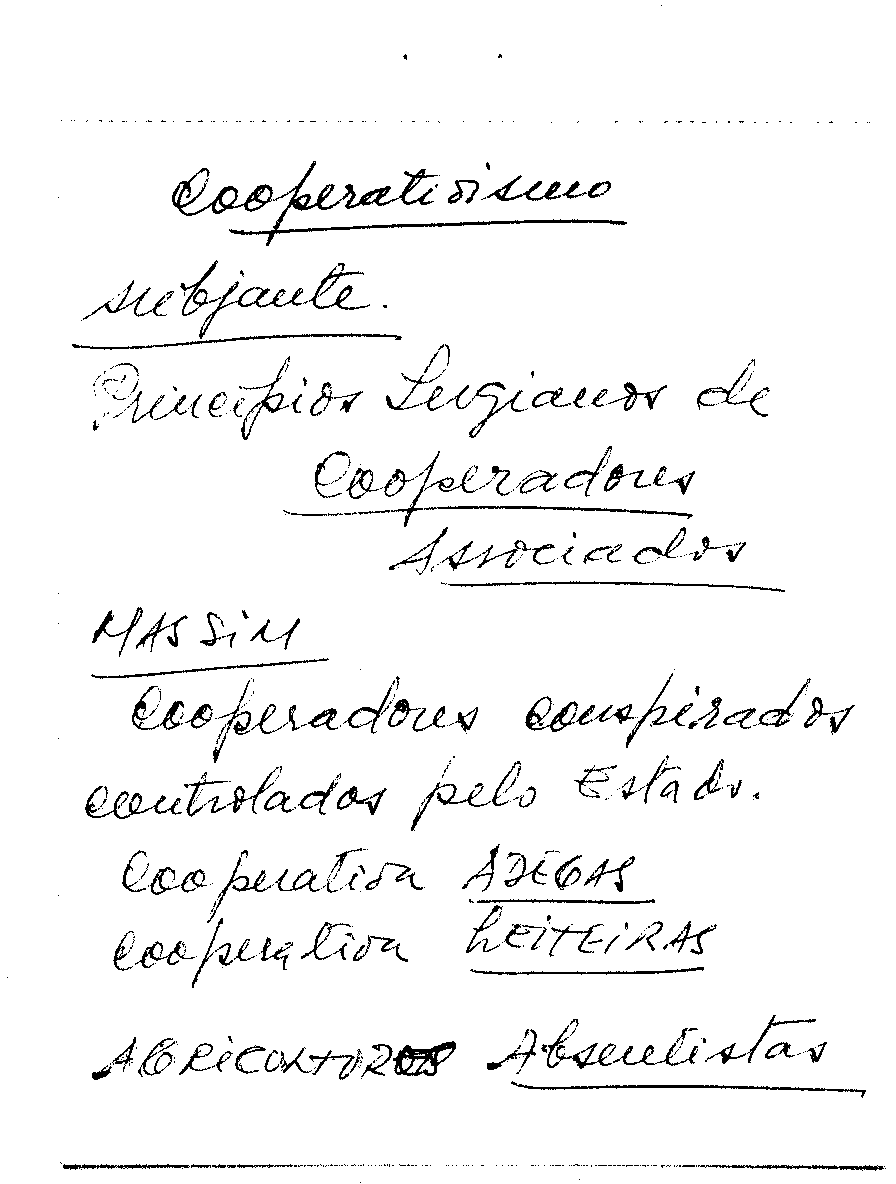 Cooperativismo
subjante.
Princípios Sergianos de
Cooperadores
Associados
MASSIM
Cooperadores conspirados
controlados pelo Estado.
Cooperativa ADEGAS
Cooperativa LEITEIRAS
AGRICOLTORES Absentistas